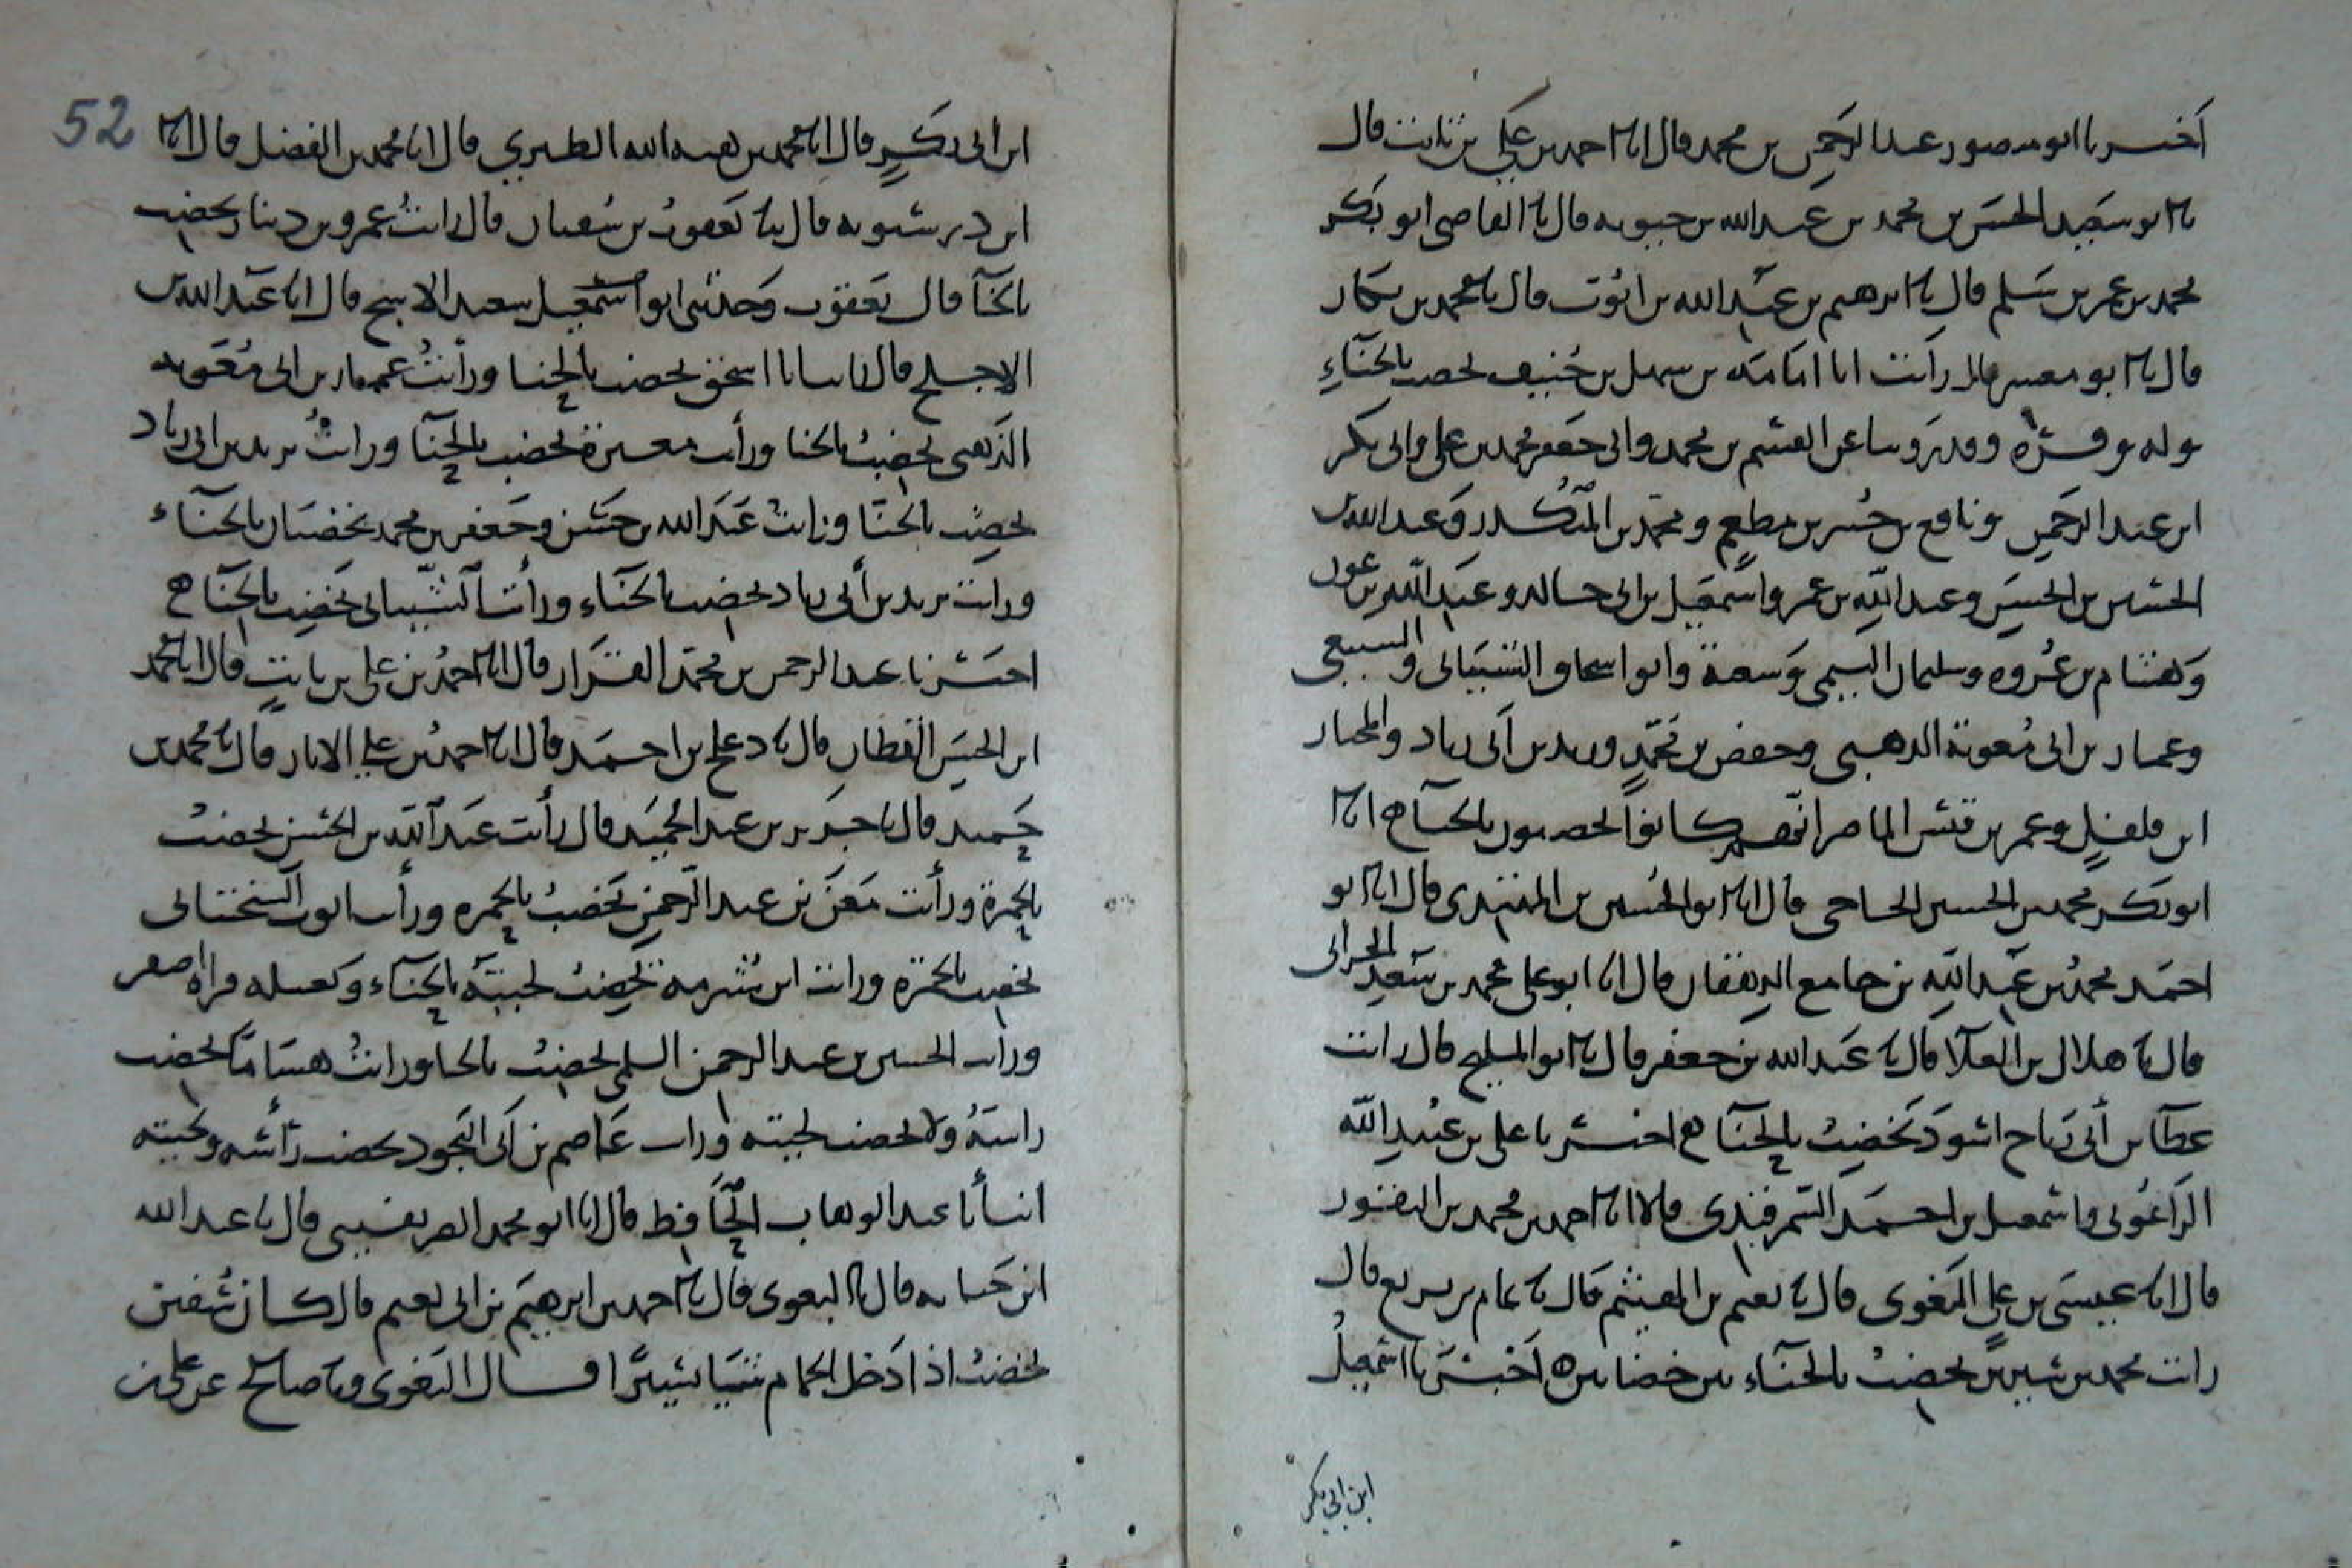 اخبرنا ابو منصور عبد الرحمن بن محمد قال انا احمد بن علي بن ثابت قال
نا ابو سعيد الحسن بن محمد بن عبد الله بن حسويه قال نا القاضي ابو بكر
محمد بن عمر بن سلم قال نا ابرهيم بن عبد الله بن ايوب قال نا محمد بن بكار
قال نا ابو معشر قال رأيت ابا امامة بن سهل بن حنيف يخضب بالحناء
وله وفرة وقد روينا عن القسم بن محمد وابي جعفر محمد بن علي وابي بكر
ابن عبد الرحمن ونافع بن جبير بن مطعم ومحمد بن المنكدر وعبد الله بن
الحسن بن الحسين وعبد الله بن عمر واسمعيل بن ابي خالد وعبد الله بن عون
وهشام بن عروة وسليمان التيمي وشعبة وابو اسحاق الشيباني والسبيعي
وعمار بن ابي معوية الدهني وحفص بن محمد ويزيد بن ابي زياد والمختار
ابن فلفل وعمر بن قيس الماصر انهم كانوا يخضبون بالحناح انا
ابو بكر محمد بن الحسين الحاجي قال انا ابو الحسين بن المهتدي قال انا ابو
احمد محمد بن عبد الله بن جامع الدهان قال انا ابو علي محمد بن سعيد الحراني
قال نا هلال بن العلا قال نا عبد الله بن جعفر قال نا ابو المليح قال رايت
عطا بن أبي رباح اسود يخضب بالحناح اخبرنا علي بن عبيد الله
الزاغوني واسمعيل بن احمد السمرقندي قالا انا احمد بن محمد بن النقور
قال انا عيسى بن علي البغوي قال نا نعيم بن الهيثم قال نا تمام بن بزيع قال
رايت محمد بن سيرين يخضب بالحناء من خضابين ه اخبرنا اسمعيل
ابن ابي بكر
52
ابن ابي بكر قال انا محمد بن هبة الله الطبري قال انا محمد بن الفضل قال انا
ابن درستويه قال نا يعقوب بن سفيان قال رايت عمرو بن دينار يخضب
بالحنا قال يعقوب وحدثني ابو اسمعيل سعيد الاشج قال انا عبد الله بن
الاجلح قال رايت ابا اسحق يخضب بالحنا ورأيت عمار بن ابي معوية
الدهني يخضب بالحنا ورأيت مغيرة يخضب بالحنا ورايت يزيد بن ابي زياد
يخضب بالحنا ورايت عبد الله بن حسن وجعفر بن محمد يخضبان بالحناء
ورايت يزيد بن أبي زياد يخضب بالحناء ورأيت الشيباني يخضب بالحناح
اخبرنا عبد الرحمن بن محمد القزاز قال انا احمد بن علي بن ثابت قال انا محمد
ابن الحسين القطان قال نا دعلج بن احمد قال انا احمد بن علي الابار قال نا محمد بن
حميد قال نا جرير بن عبد الحميد قال رأيت عبد الله بن الحسن يخضب
بالحمرة ورأيت معن بن عبد الرحمن يخضب بالحمرة ورأيت ايوب السختياني
يخضب بالحمرة ورايت ابن شبرمة يخضب لحيته بالحناء وكغسله فراه اصفر
ورأيت الحسين بن عبد الرحمن السلمي يخضب بالحنا ورايت هشاما يخضب
راسه ولا يخضب لحيته ورايت عاصم بن ابي النجود يخضب رأسه ولحيته
انبأنا عبد الوهاب الحافظ قال انا ابو محمد الصريفيني قال نا عبد الله
ابن حبابه قال نا البغوي قال نا احمد بن ابرهيم بن ابي نعيم قال كان سفين
يخضب اذا دخل الحمام شيا يسيرا قال البغوي ونا صالح عن علي بن